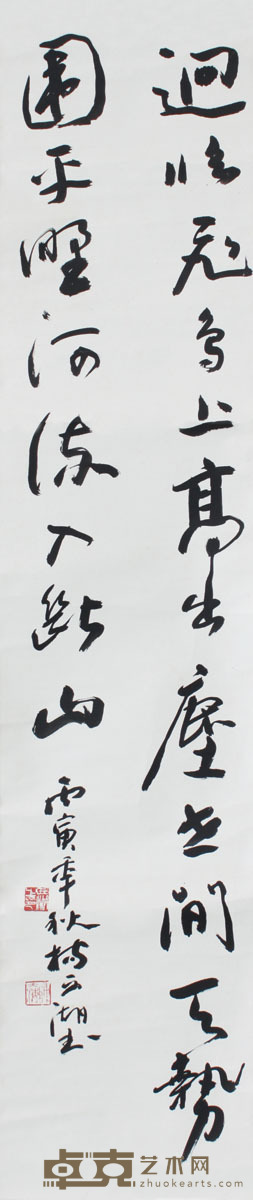 迥临飛鸟上高出塵世間天勢
圍平野河流入断山
丙寅年秋
卓克艺术网
zhuokearts.com